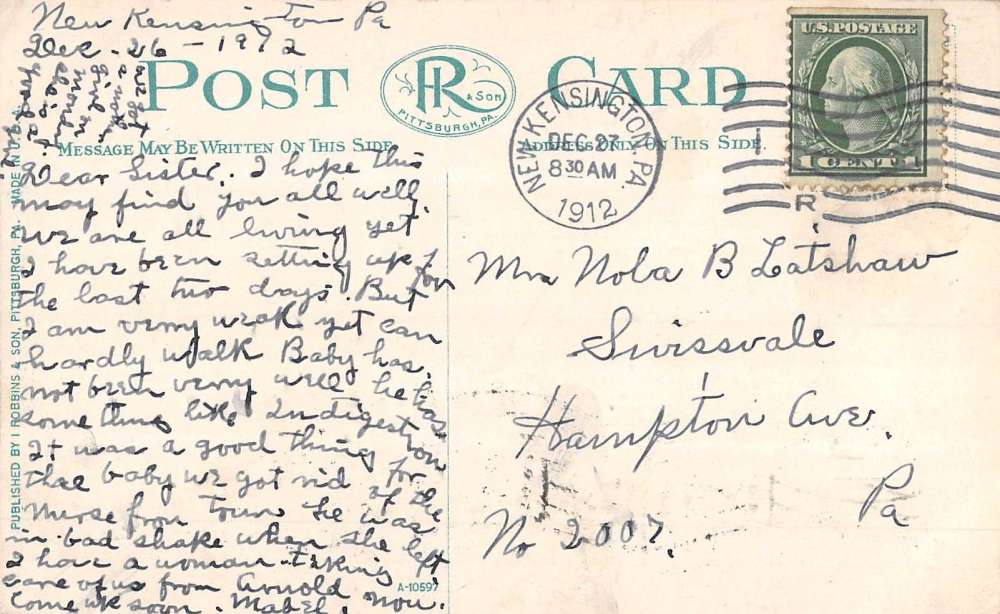 New Kensington Pa
Dec - 26 - 1912
POST CARD
R & SON
PITTSBURGH, PA.
MESSAGE MAY BE WRITTEN ON THIS SIDE
ADDRESS ONLY ON THIS SIDE.
U.S. POSTAGE
1 CENT 1
NEW KENSINGTON, PA.
DEC 27
8 30 AM
1912
R
Dear Sister. I hope this
may find you all well.
we are all living yet
I have been setting up for
the last two days. But
I am verry weak yet can
hardly walk Baby has
not been verry well he has
something like Indigestion
It was a good thing for
thee baby we got rid of the
nurse from Town he was
in bad shake when she left
I have a woman taking
care of us from Arnold
come up soon. Mabel. now.
Mrs Nola B Latshaw
Swissvale
Hampton Ave.
Pa
No 2007.
PUBLISHED BY I ROBBINS & SON, PITTSBURGH, PA. MADE IN U.S.A.
A-10597